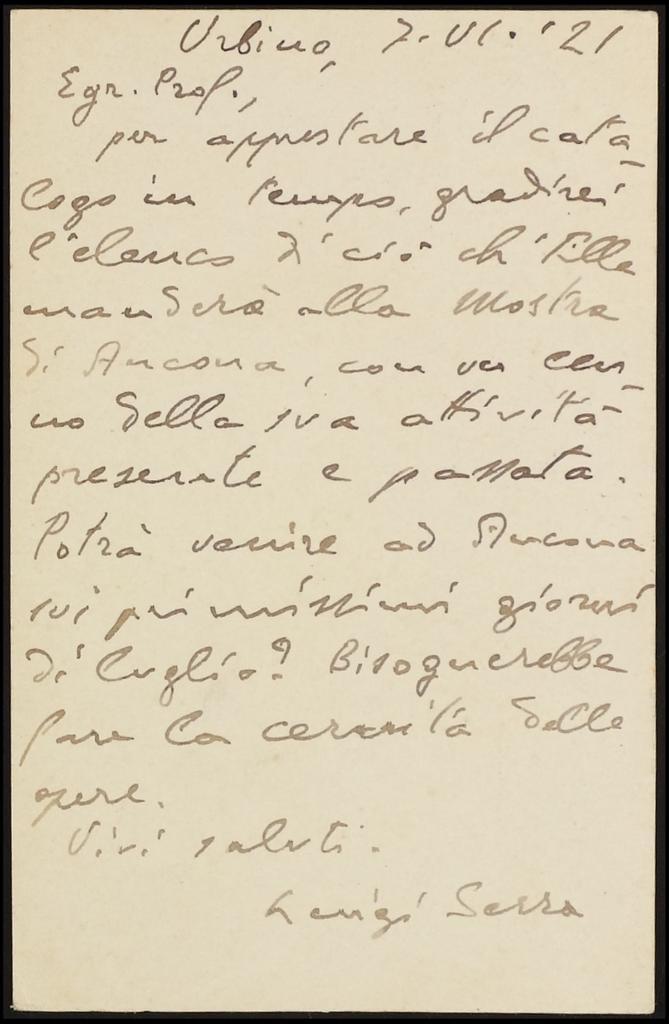 Urbino, 7. VI. '21
Egr. Prof.,
per apprestare il cata-
logo in tempo, gradirei
l'elenco di ciò ch'Ella
manderà alla Mostra
di Ancona, con un cen-
no della sua attività
presente e passata.
Potrà venire ad Ancona
sui primissimi giorni
di luglio? Bisognerebbe
fare la cernita delle
opere.
Vivi saluti.
Luigi Serra